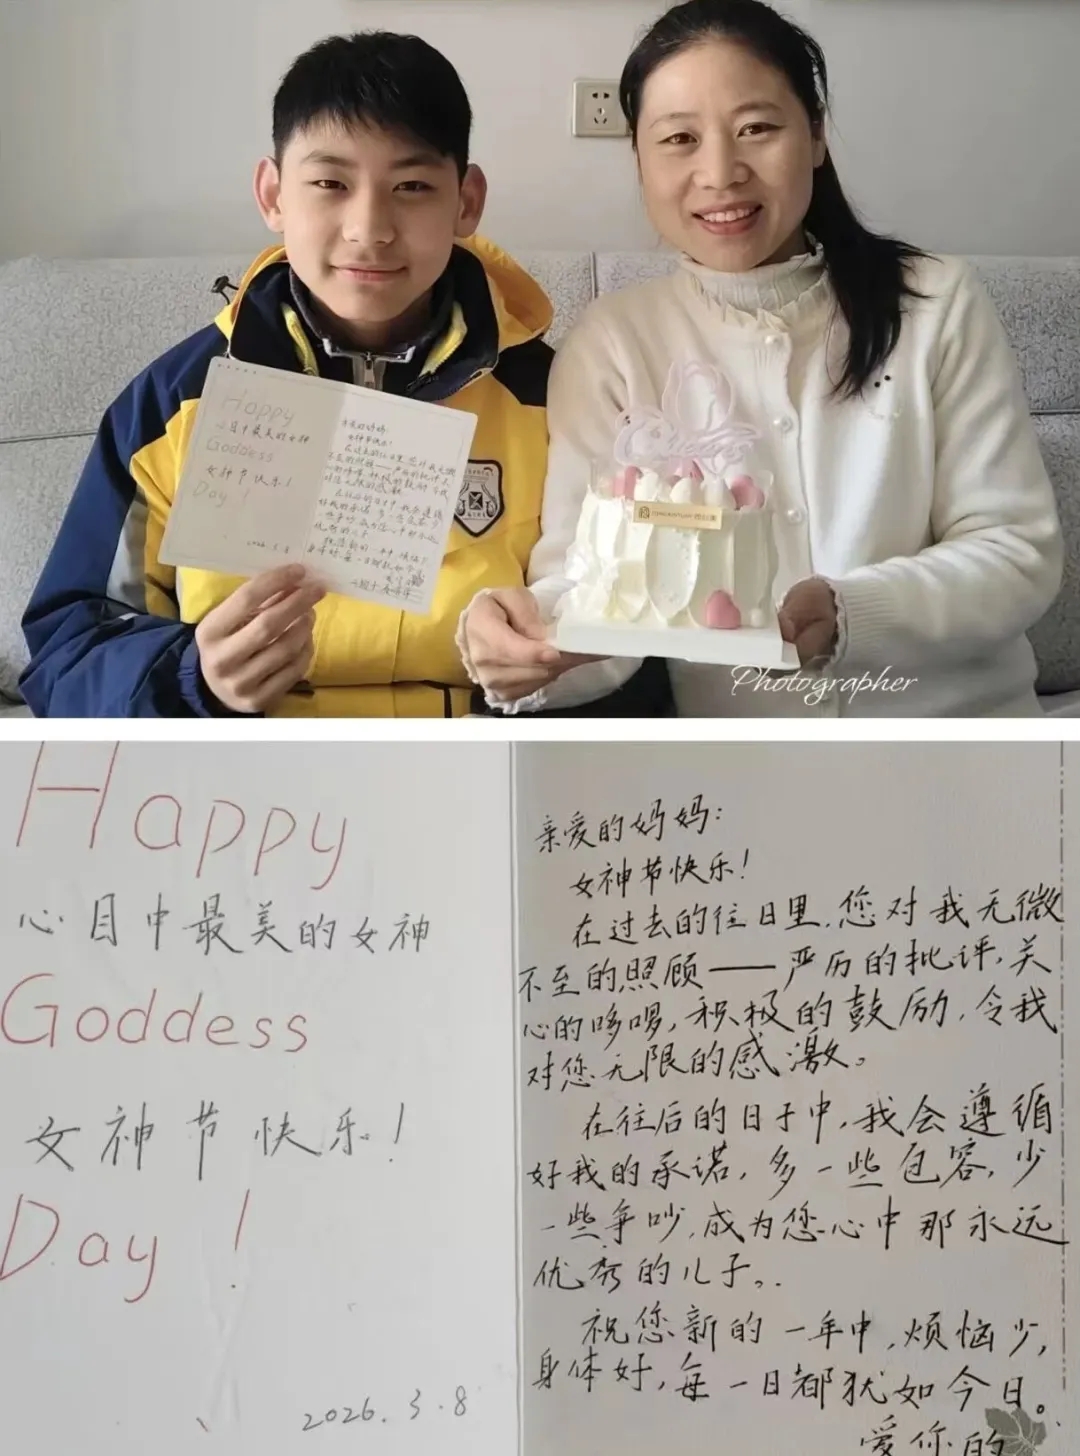 Photographer
Happy
心目中最美的女神
Goddess
女神节快乐!
Day!
2026.3.8
亲爱的妈妈:
女神节快乐!
在过去的往日里,您对我无微
不至的照顾——严历的批评,关
心的哆啰,积极的鼓励,令我
对您无限的感激。
在往后的日子中,我会遵循
好我的承诺,多一些包容,少
一些争吵,成为您心中那永远
优秀的儿子。
祝您新的一年中,烦恼少,
身体好,每一日都犹如今日。
爱你的